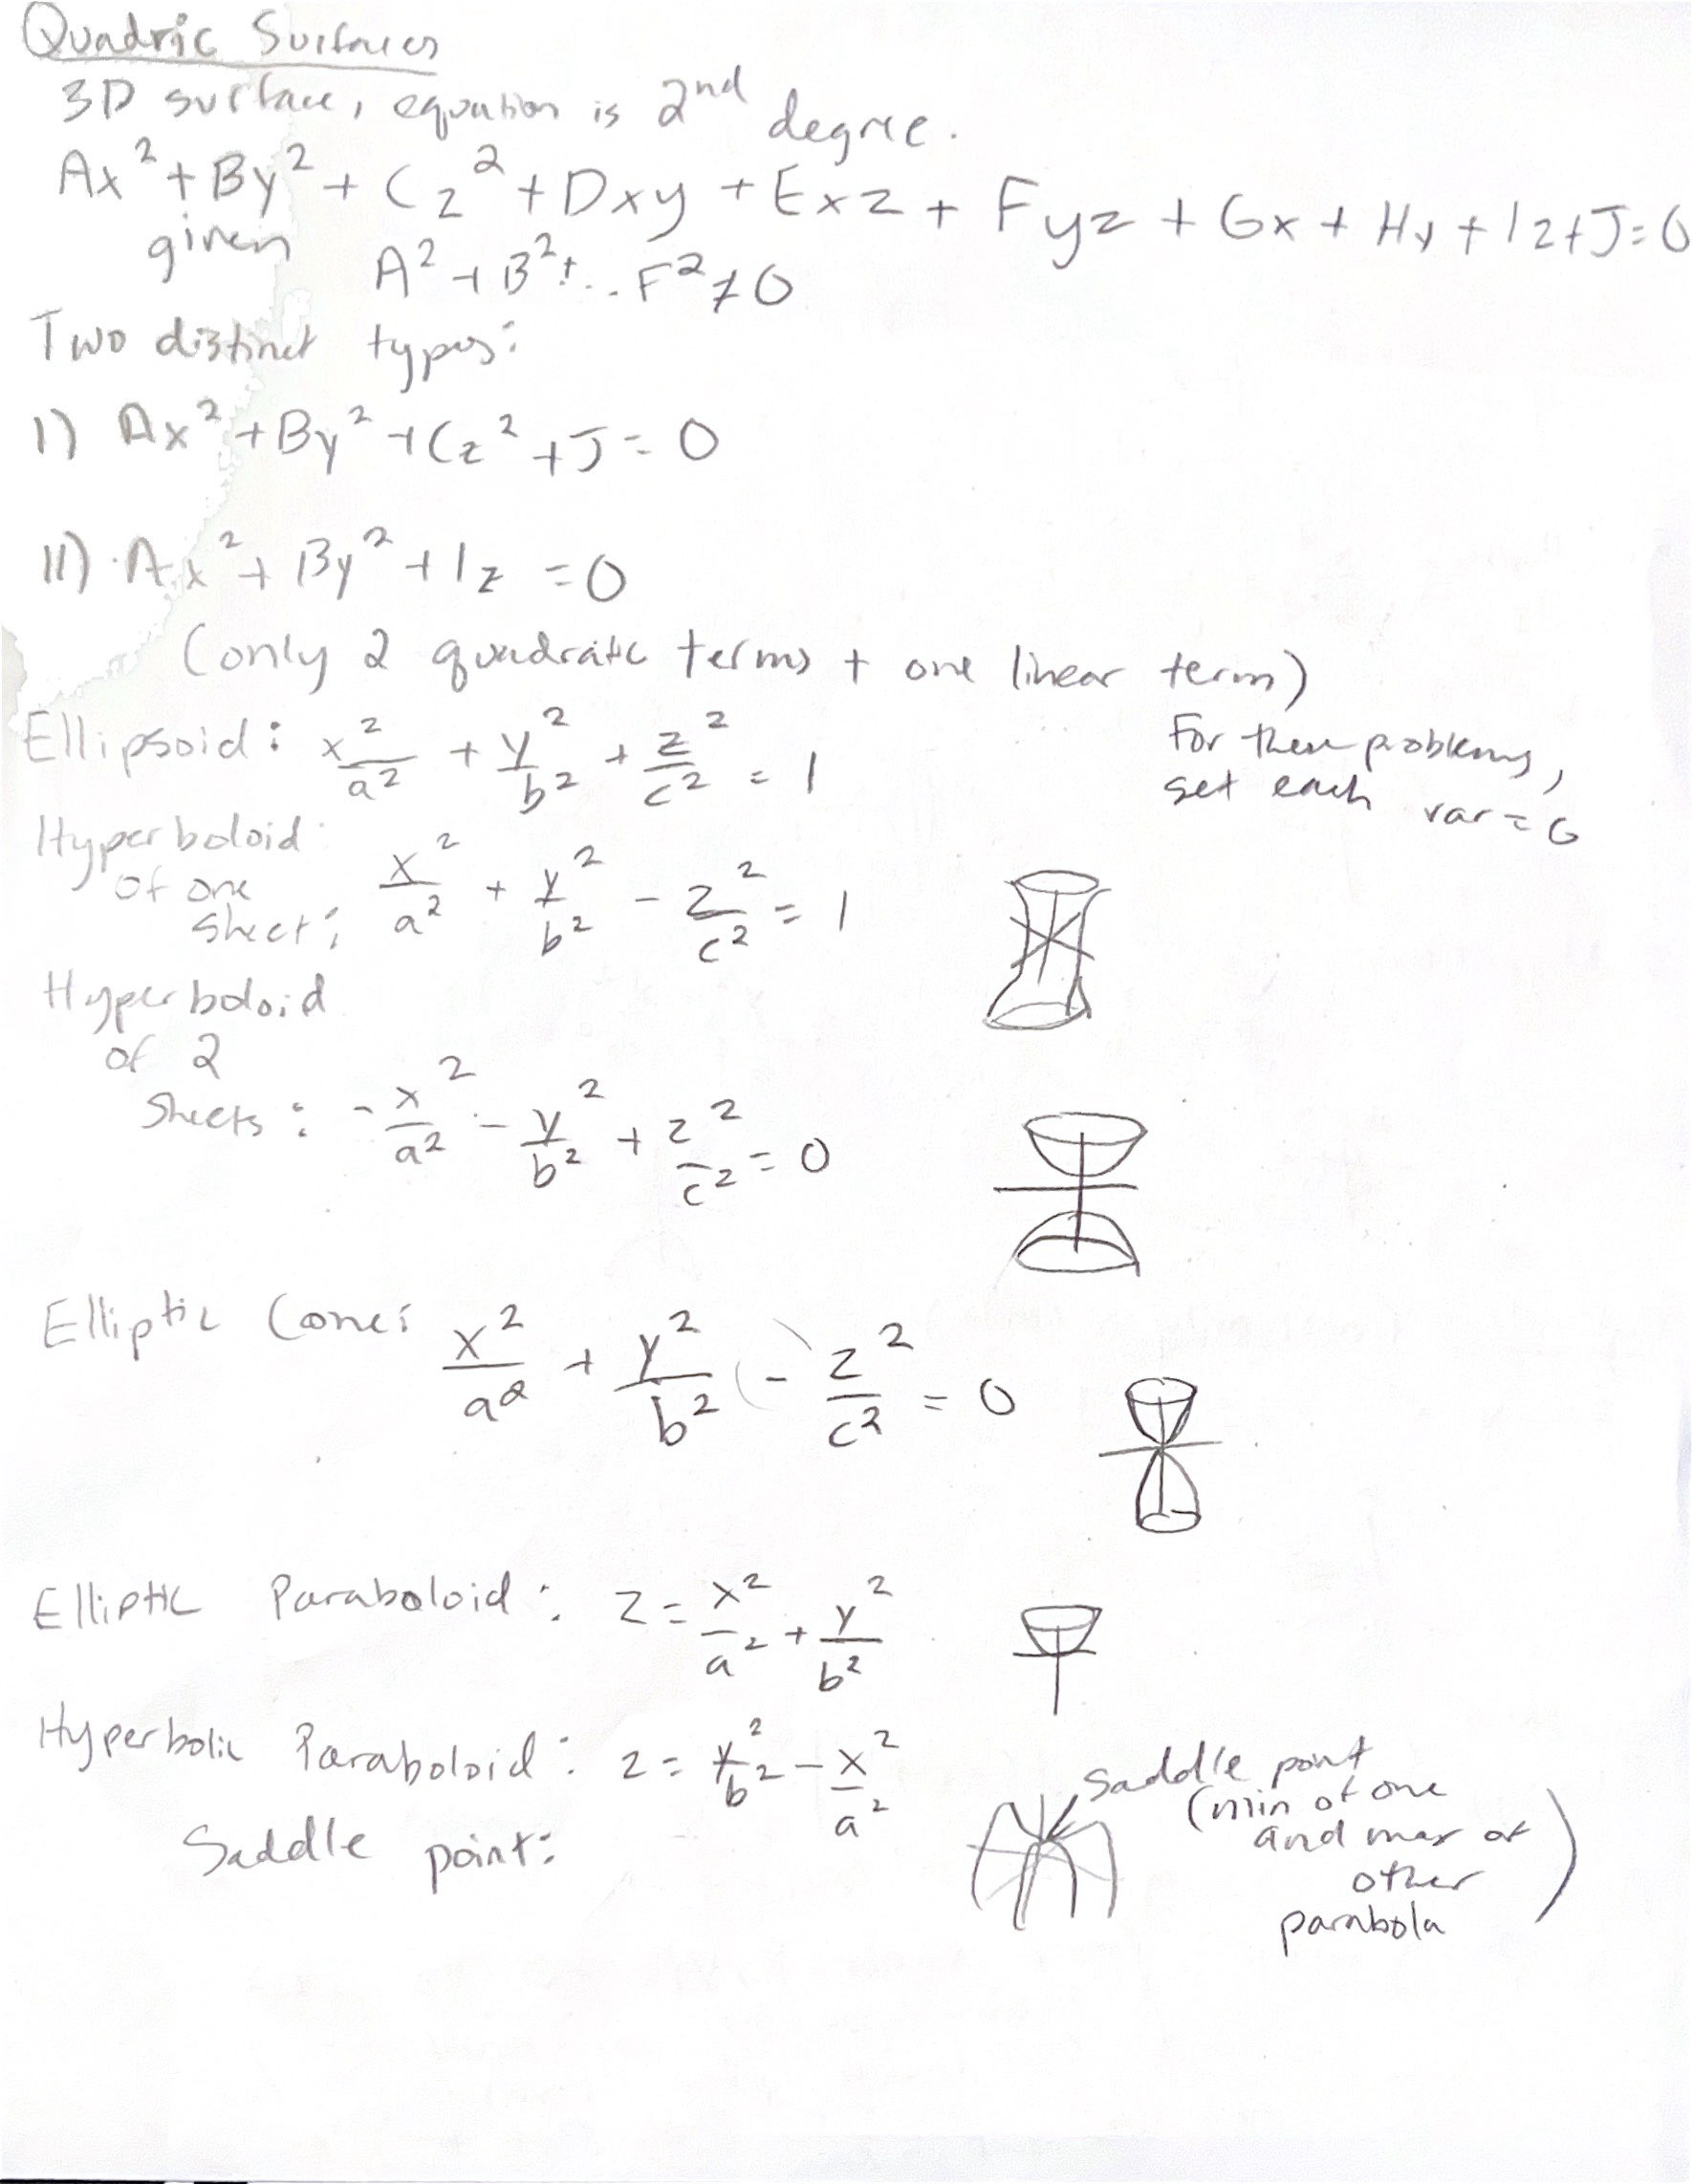 Quadric Surfaces
3D surface, equation is 2nd degree.
Ax² + By² + Cz² + Dxy + Exz + Fyz + Gx + Hy + Iz + J = 0
given A² + B² + ... F² ≠ 0
Two distinct types:
I) Ax² + By² + Cz² + J = 0
II) Ax² + By² + Iz = 0
(only 2 quadratic terms + one linear term)
For these problems,
set each var = 0
Ellipsoid: x²/a² + y²/b² + z²/c² = 1
Hyperboloid
of one
sheet: x²/a² + y²/b² - z²/c² = 1
Hyperboloid
of 2
Sheets: -x²/a² - y²/b² + z²/c² = 0
Elliptic Cone: x²/a² + y²/b² - z²/c² = 0
Elliptic Paraboloid: z = x²/a² + y²/b²
Hyperbolic Paraboloid: z = y²/b² - x²/a²
Saddle point:
Saddle point
(min of one
and max of
other
parabola)